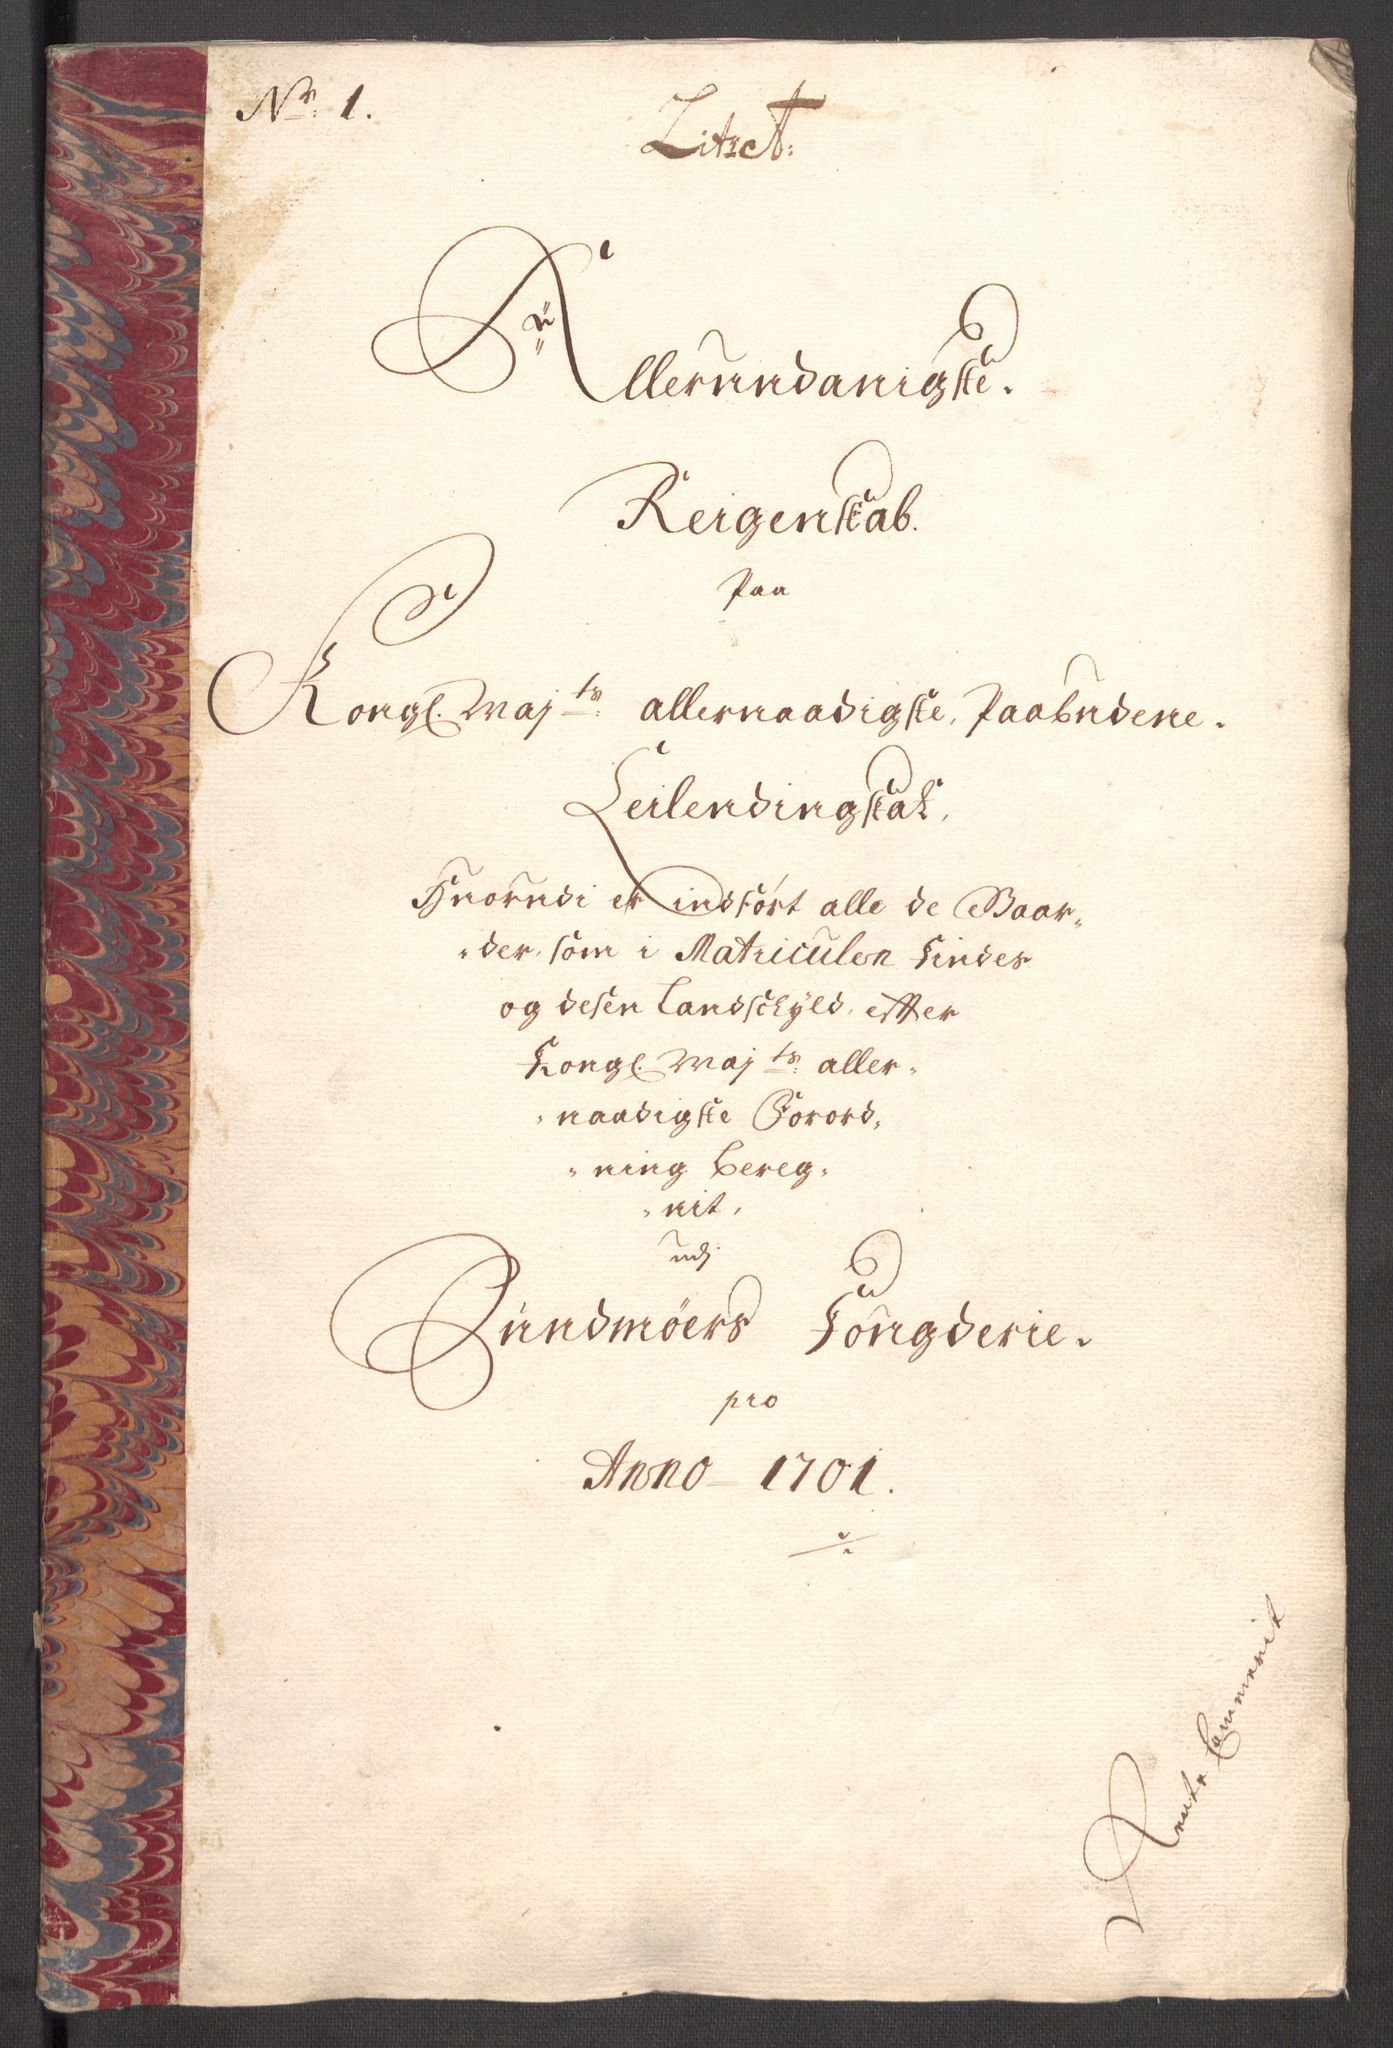 Nr: 1.
Lit: A:
Allerundanigste.
Reigenskab.
Paa
Kongl. Maj:ts allernaadigste, Paabudene.
Leilendingskat,
Huorudi er indført alle de Gaar„
„der, som i Matriculen findes
og desen Landschyld, efter
Kongl. Maj:ts aller„
„naadigste Forord„
„ning bereg„
„nit,
udj
Sundmøers Fougderie.
pro
Anno 1701.